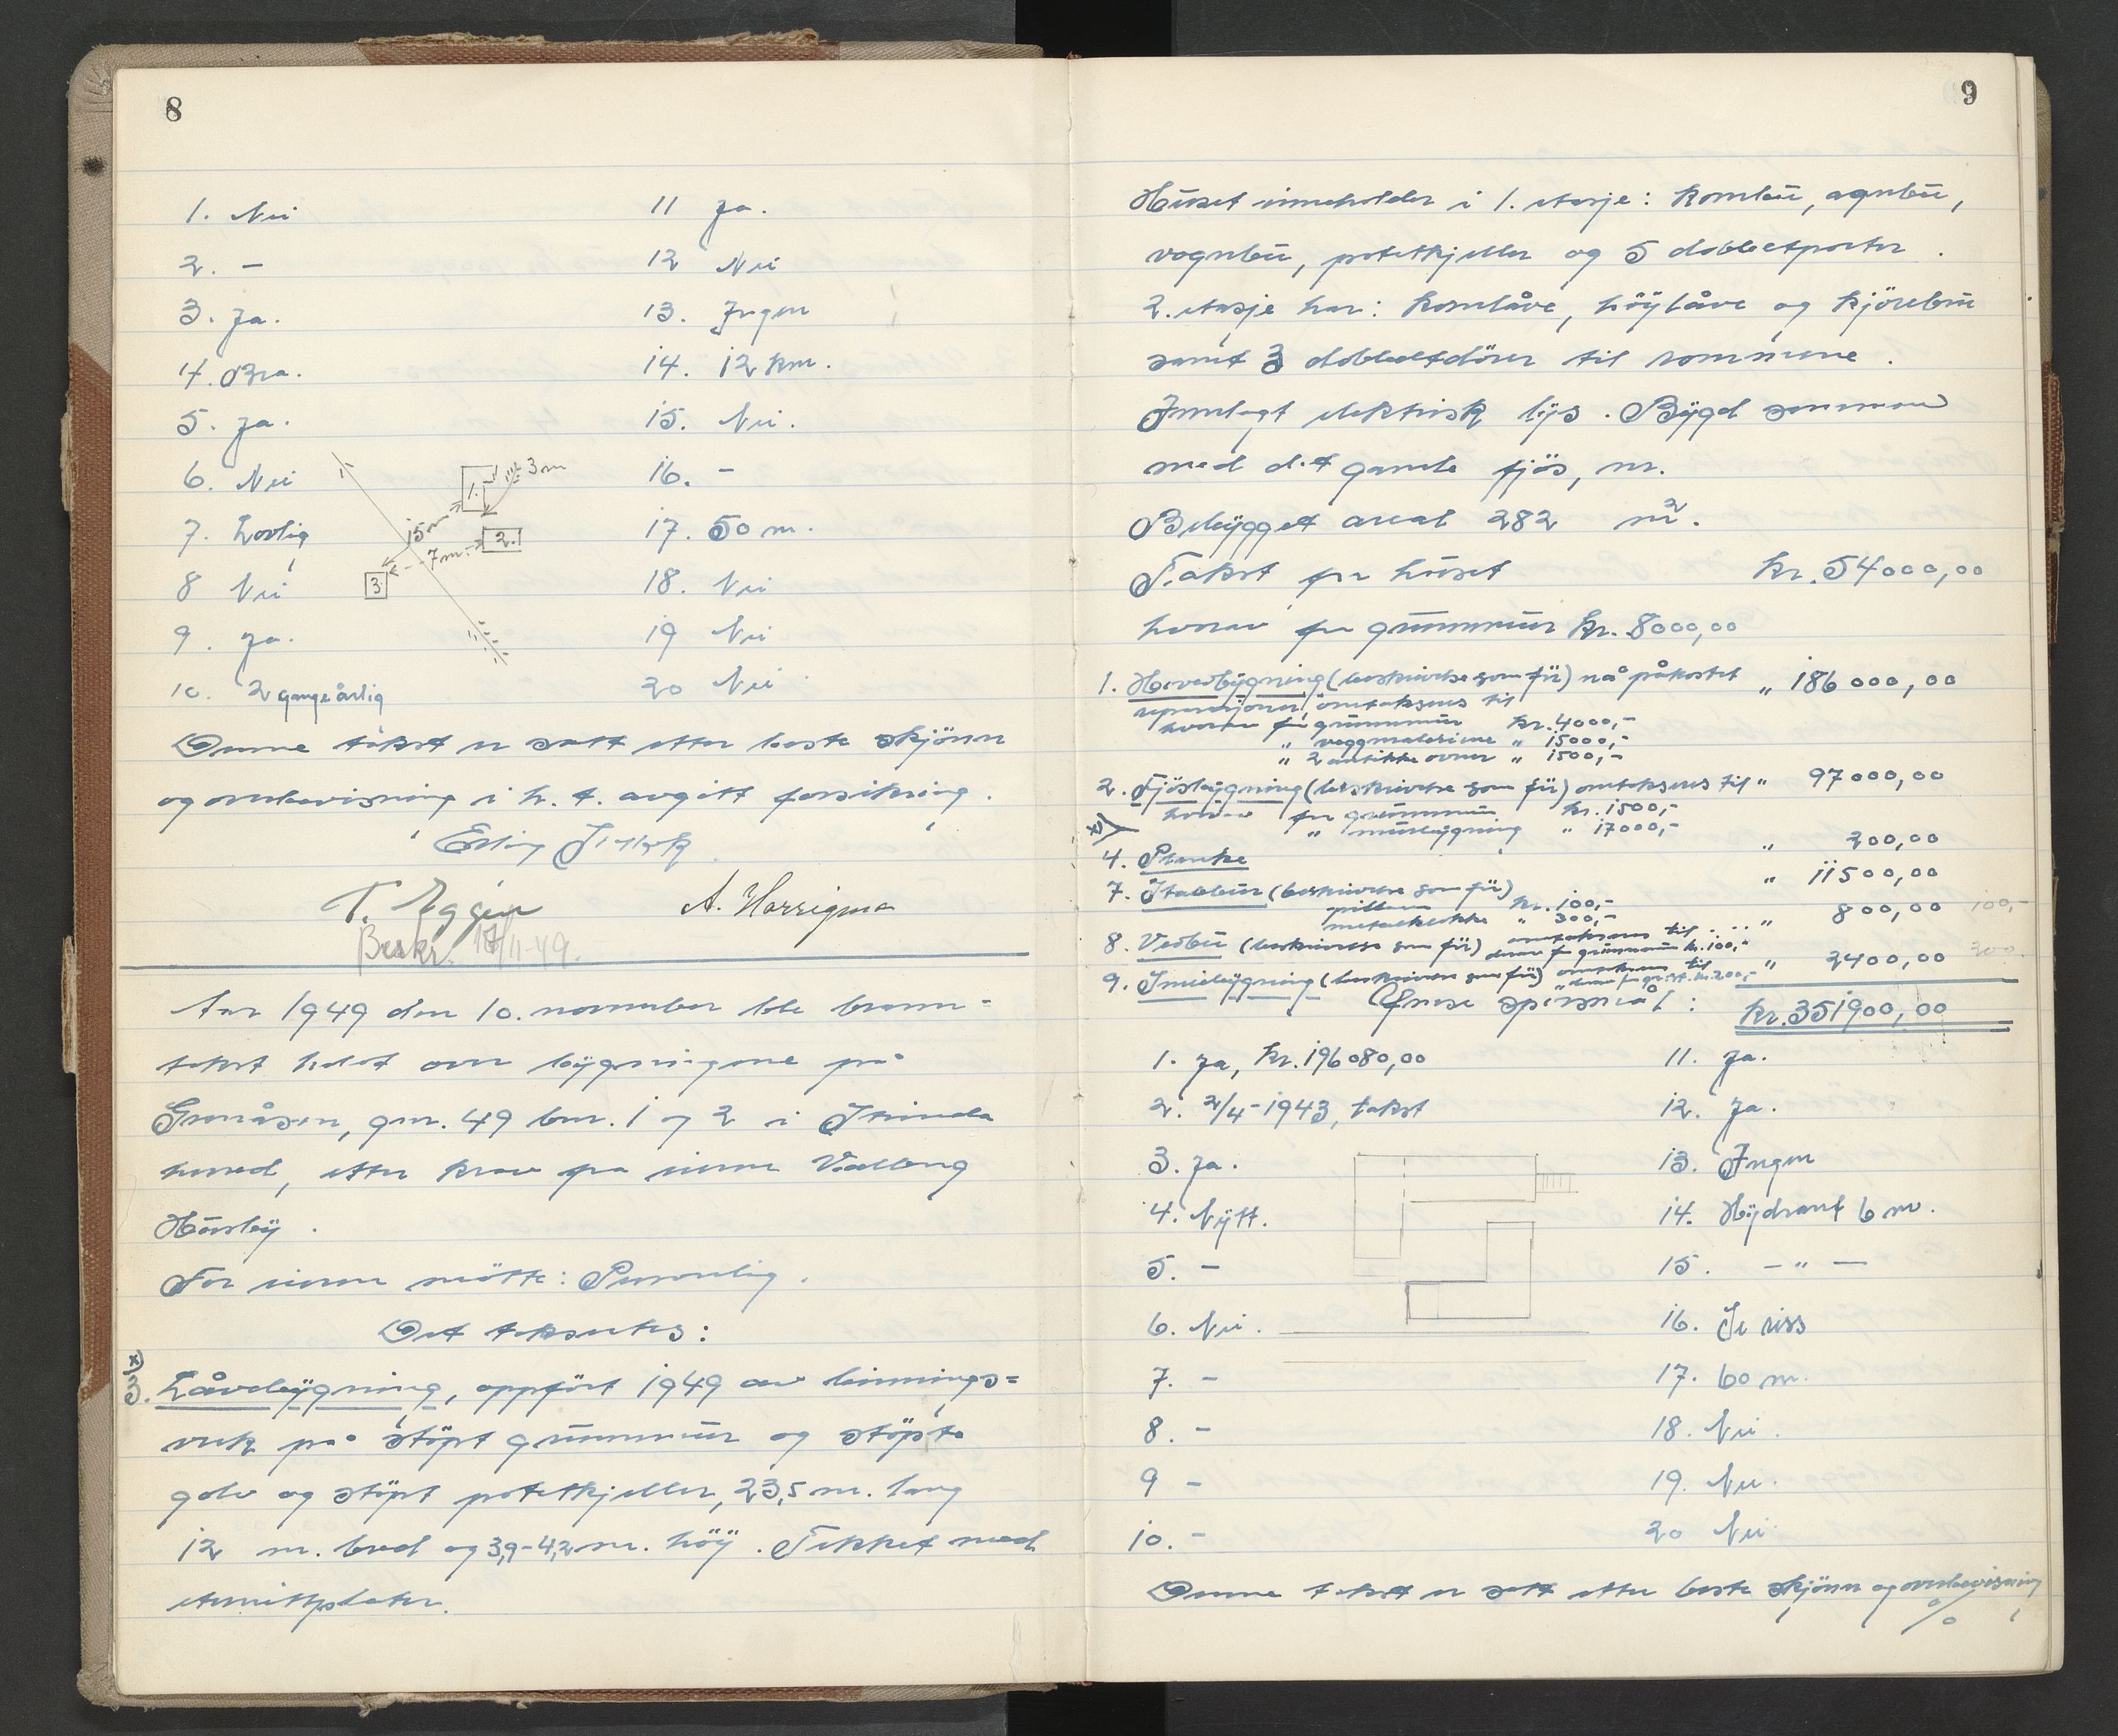 8
1. Nei
2. –
3. Ja.
4. Bra.
5. Ja.
6. Nei
7. Lovlig
8 Nei
9. Ja.
10. 2 gange årlig
11 Ja.
12 Nei
13. Ingen
14. 12 km.
15. Nei.
16. –
17. 50 m.
18. Nei
19 Nei
20 Nei
1.
3 m
15 m
7 m.
2.
3
Denne takst er satt etter beste skjönn
og overbevisning i h. t. avgitt forsikring.
Erling
T. Eggen A. Harrigma
Beskr. 17/11-49.
Aar 1949 den 10. november ble brann-
takst holdt over bygningene på
Granåsen, gnr. 49 bnr. 1 og 2 i Strinda
herred, etter krav fra eieren Valborg
Huseby.
For eieren mötte: Personlig.
Det taksertes:
x)
3. Låvebygning, oppfört 1949 av binnings=
verk på stöpt grunnmur og stöpte
golv og stöpt potetkjeller, 23,5 m. lang
12 m. bred og 3,9-4,2 m. höy. Tekket med
eternittplater.
9
Huset inneholder i 1. etasje: Kornbu, agnbu,
vognbu, potetkjeller og 5 dobbeltporter.
2. etasje har: Kornlåve, höylåve og kjörebru
samt 3 dobbeltdörer til rommene.
Innlagt elektrisk lys. Bygd sammen
med det gamle fjös, nr.
Bebygget areal 282 m2.
Takst for huset kr. 54000,00
hvorav for grunnmur kr. 8000,00
1. Hovedbygning (beskrivelse som för) nå påkostet
reparasjoner, omtakseres til " 186 000,00
hvorav for grunnmur kr. 4000,-
" veggmaleriene " 15000,-
" 2 antikke ovner " 1500,-
2. Fjösbygning (beskrivelse som för) omtakseres til " 97000,00
hvorav for grunnmur kr. 1500,-
" murbygning " 17000,-
x)
4. Pumke " 200,00
7. Stabbur (beskrivelse som för) " 11500,00
pillarer kr. 100,-
metallklokke " 300,-
8. Vedbu (beskrivelse som för) omtakseres til . . . " 800,00 100,-
derav for grunnmur kr. 100,-
9. Smiebygning (beskrivelse som för) omtakseres til " 2400,00 200
derav for gr.m. kr. 200,-
Visse spörsmål: kr. 351900,00
1. Ja, kr. 196080,00
2. 2/4-1943, takst
3. Ja.
4. Nytt.
5. –
6. Nei.
7. –
8. –
9 –
10. –
11. Ja.
12. Ja.
13. Ingen
14. Hydrant 6 m.
15. – " –
16. Se riss
17. 60 m.
18. Nei.
19. Nei.
20 Nei
Denne takst er satt etter beste skjönn og overbevisning
%